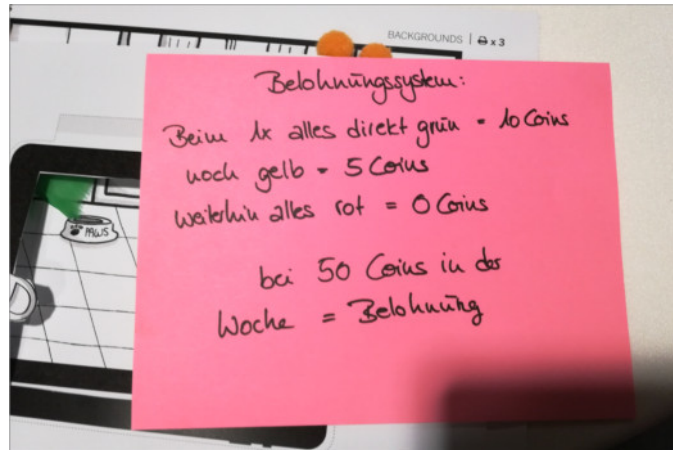 BACKGROUNDS | x 3
Belohnungssystem:
Beim 1x alles direkt grün = 10 Coins
noch gelb = 5 Coins
weiterhin alles rot = 0 Coins
bei 50 Coins in der
Woche = Belohnung
PAWS